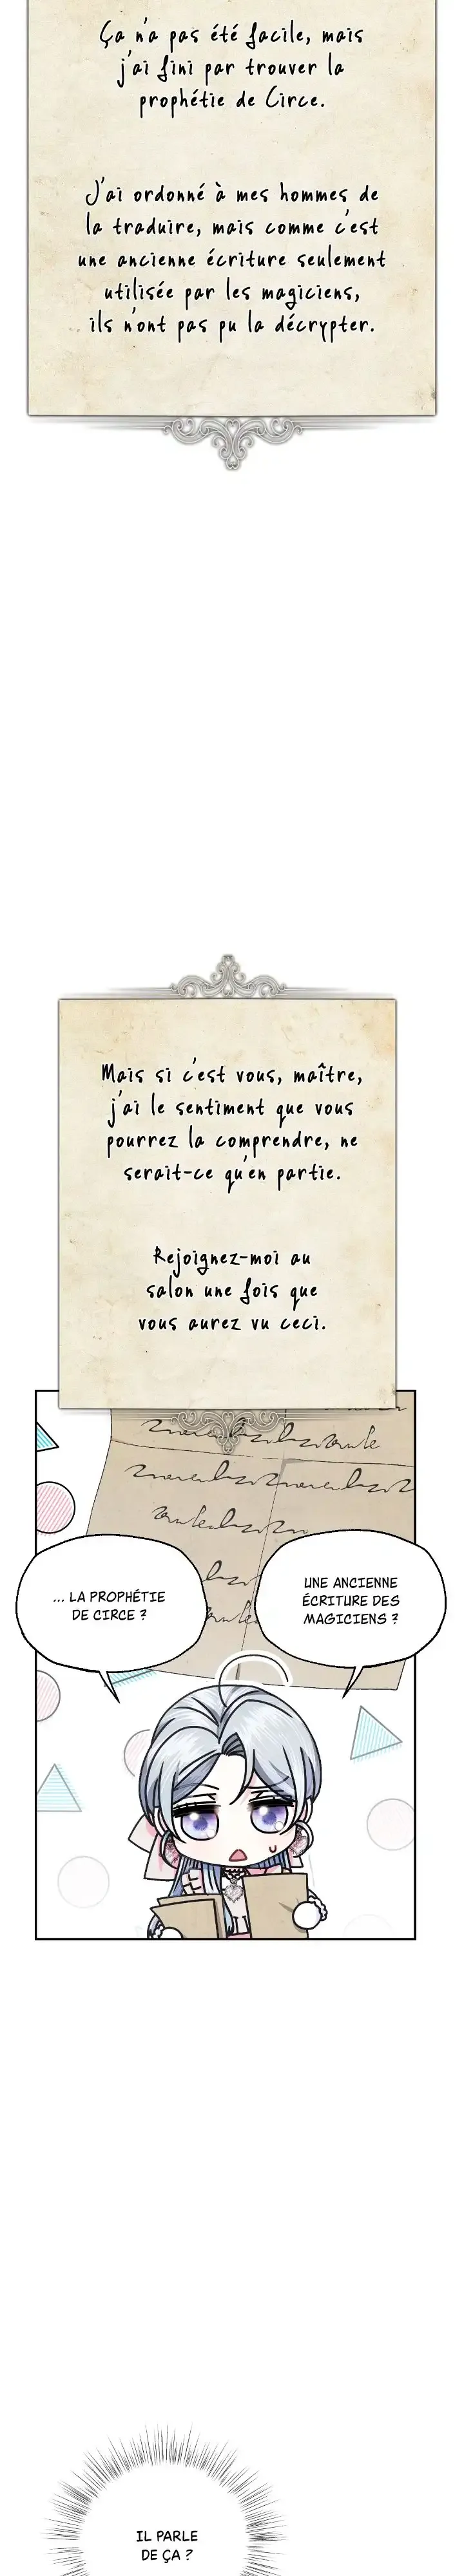 Ça n'a pas été facile, mais
j'ai fini par trouver la
prophétie de Circe.
J'ai ordonné à mes hommes de
la traduire, mais comme c'est
une ancienne écriture seulement
utilisée par les magiciens,
ils n'ont pas pu la décrypter.
Mais si c'est vous, maître,
j'ai le sentiment que vous
pourrez la comprendre, ne
serait-ce qu'en partie.
Rejoignez-moi au
salon une fois que
vous aurez vu ceci.
... LA PROPHÉTIE
DE CIRCE ?
UNE ANCIENNE
ÉCRITURE DES
MAGICIENS ?
IL PARLE
DE ÇA ?